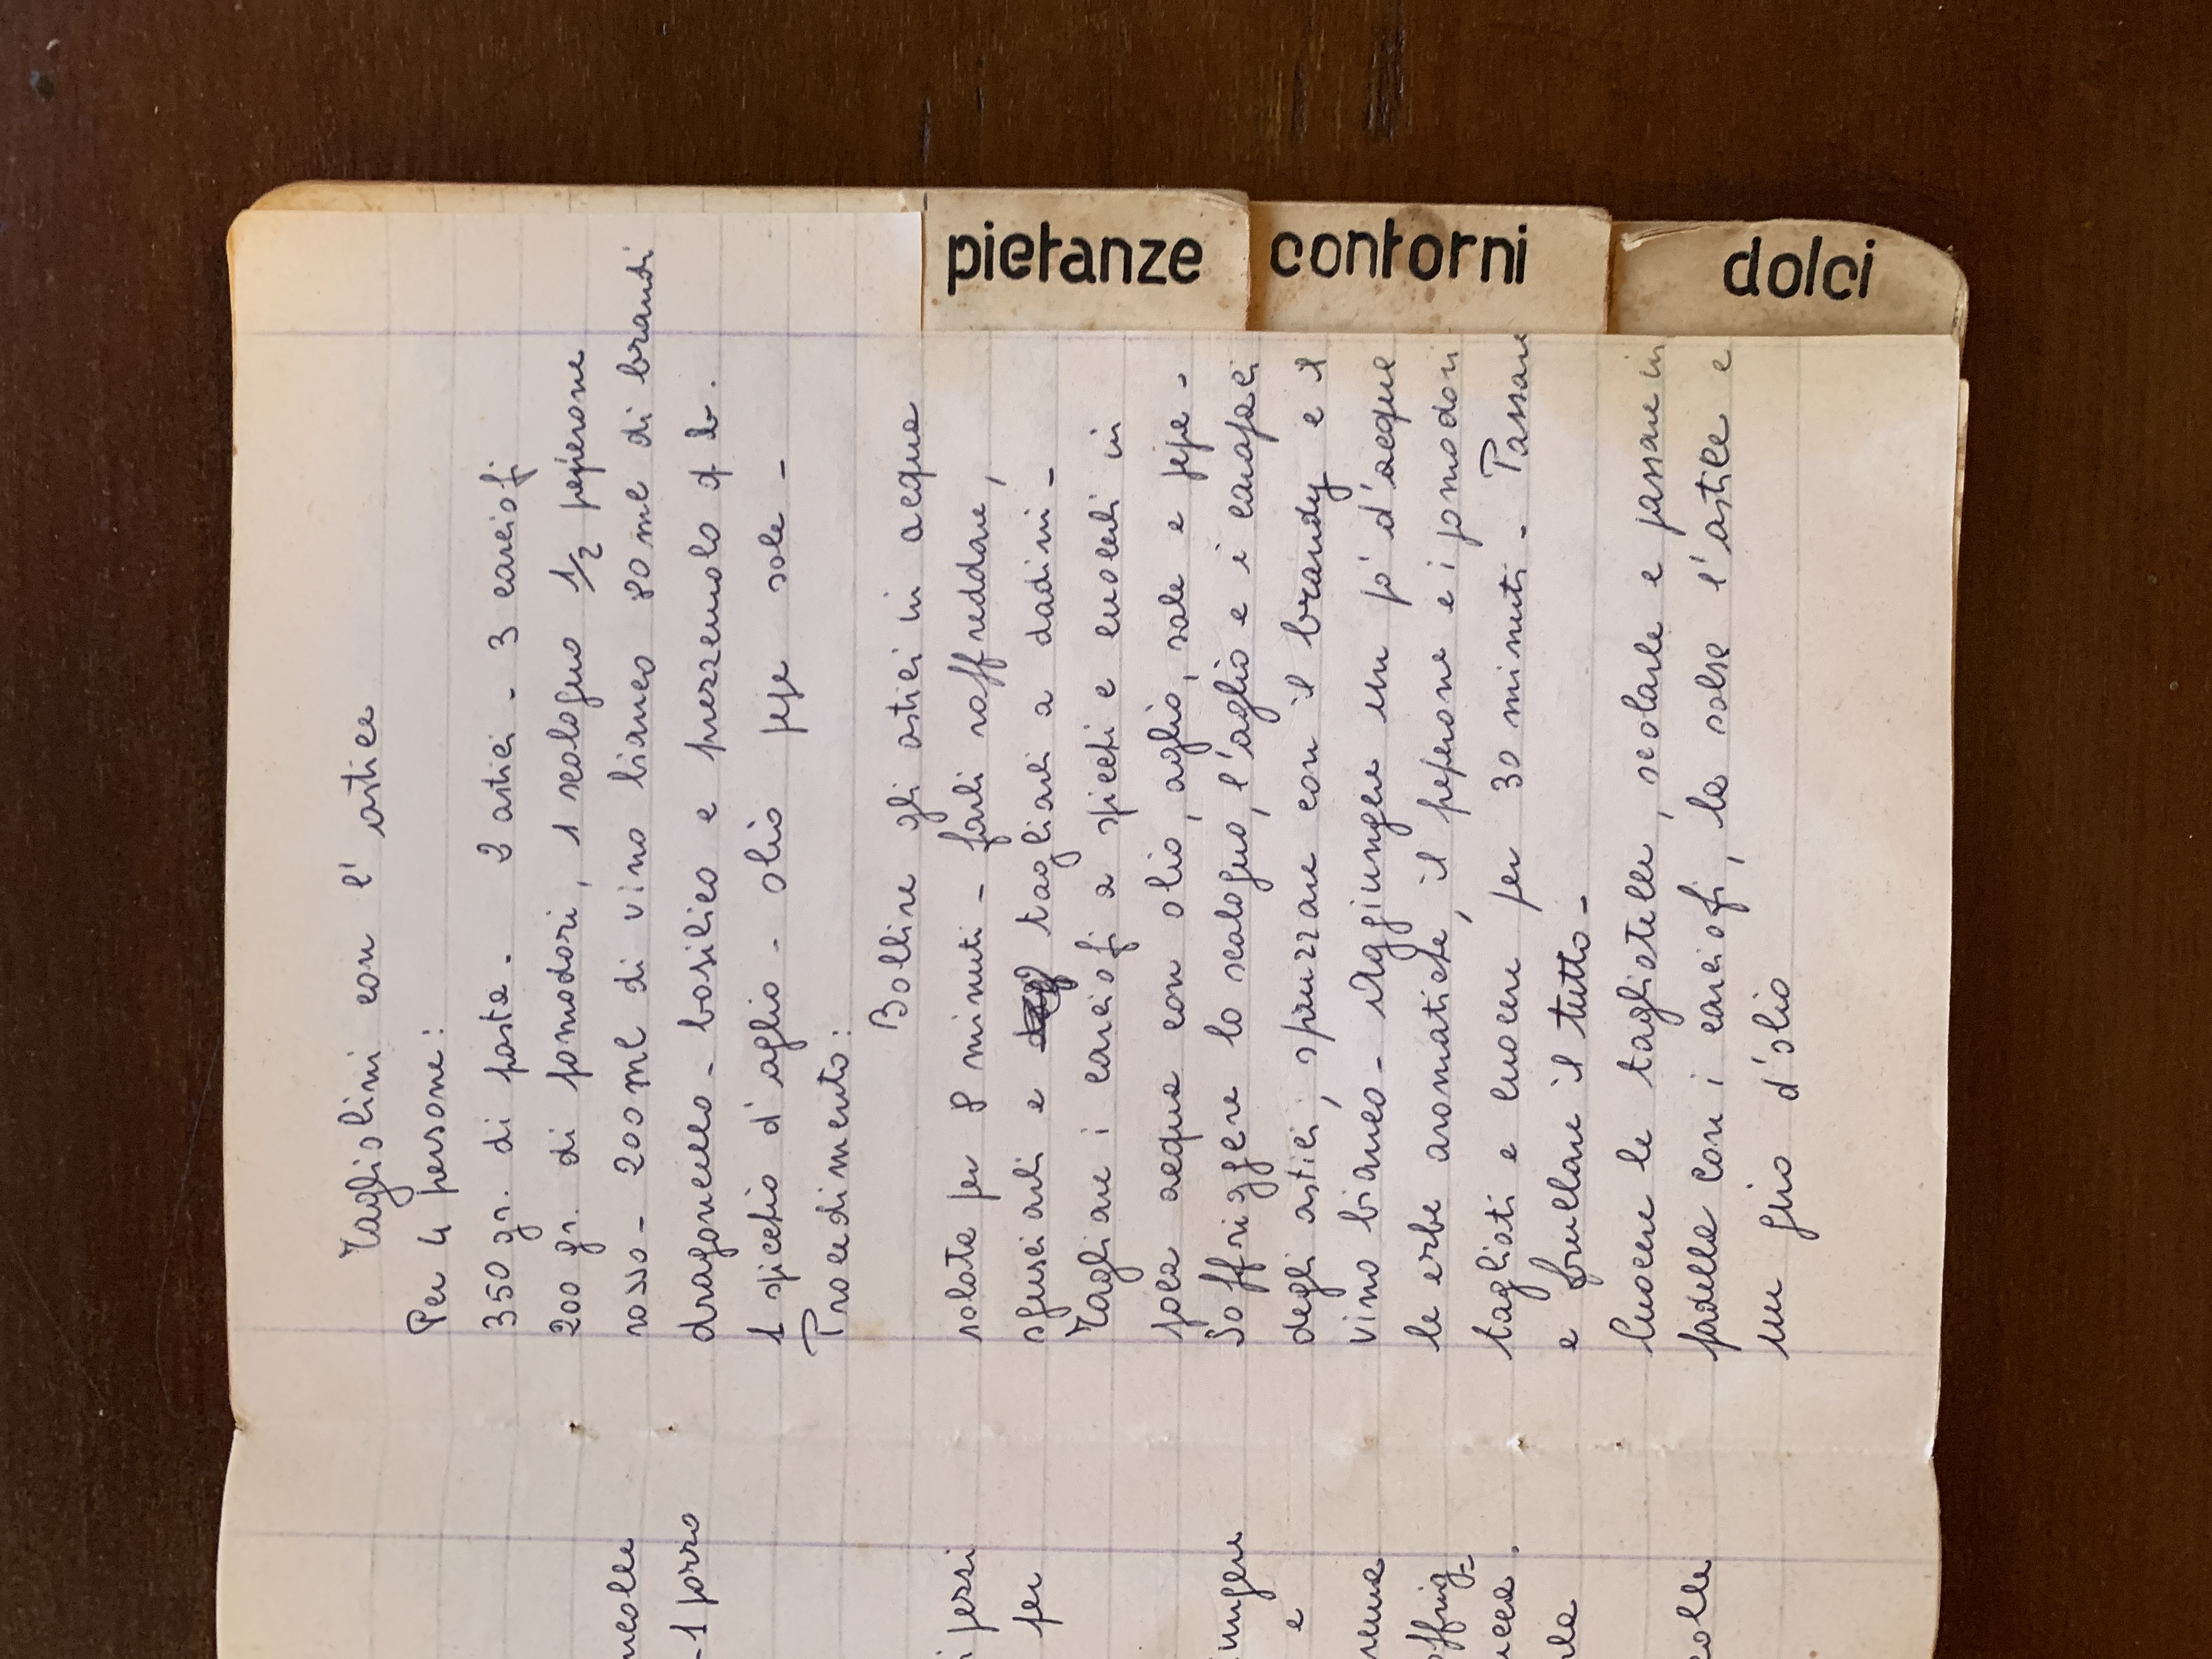 Tagliolini con l'astice
Per 4 persone:
350 gr. di pasta - 2 astici - 3 carciofi
200 gr. di pomodori, 1 scalogno 1/2 peperone
rosso - 200 ml di vino bianco 80 ml di brandi
dragoncello - basilico e prezzemolo q b.
1 spicchio d'aglio - olio pepe sale -
Procedimento:
Bollire gli astici in acqua
salata per 8 minuti - farli raffreddare,
sgusciarli e tagliarli a dadini -
Tagliare i carciofi a spicchi e cuocerli in
poca acqua con olio, aglio, sale e pepe -
Soffriggere lo scalogno, l'aglio e i carapaci
degli astici, spruzzare con il brandy e il
vino bianco - Aggiungere un pò d'acqua
le erbe aromatiche, il peperone e i pomodori
tagliati e cuocere per 30 minuti - Passare
e frullare il tutto -
Cuocere le tagliatelle, scolarle e passare in
padella con i carciofi, la salsa l'astice e
un giro d'olio
ncolle
- 1 porro
i pezzi
per
ungere
e
rema
offrig=
ucca.
rla
colle
pietanze
contorni
dolci